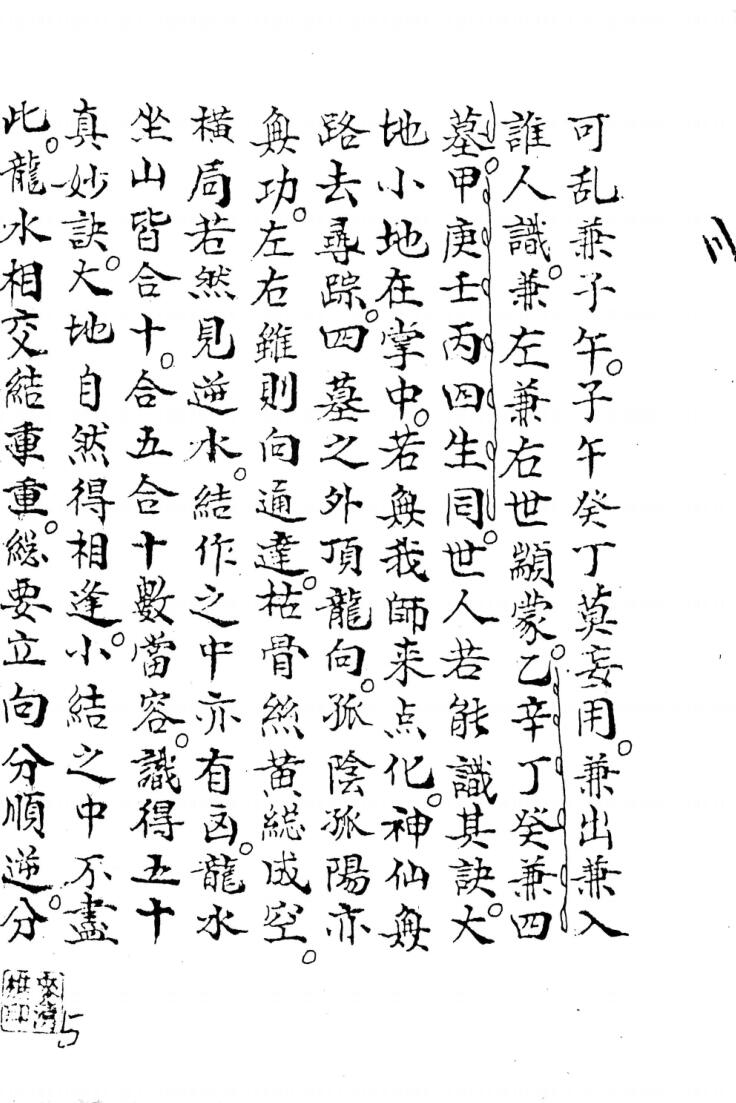 可乱兼子午。子午癸丁莫妄用。兼出兼入
誰人識。兼左兼右世顓蒙。乙辛丁癸兼四
墓。甲庚壬丙四生同。世人若能識其訣。大
地小地在掌中。若無我師来点化。神仙無
路去尋踪。四墓之外頂龍向。孤陰孤陽亦
無功。左右雖則向通達。枯骨絲黄総成空。
橫局若然見逆水。結作之中亦有凶。龍水
坐山皆合十。合五合十數當容。識得五十
真妙訣。大地自然得相逢。小結之中不盡
此。龍水相交結重重。総要立向分順逆。分
5